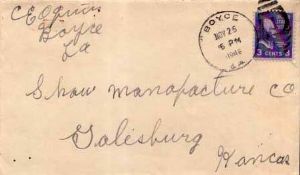 C E Quinn
Boyce
La
BOYCE
NOV 25
5 PM
1946
LA.
3 CENTS 3
Shaw manufacture CO
Galesburg
Kancas